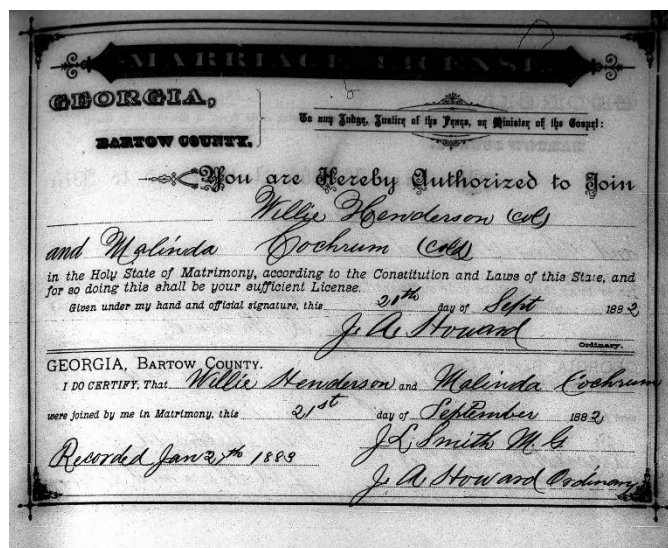 MARRIAGE LICENSE.
GEORGIA,
BARTOW COUNTY.
To any Judge, Justice of the Peace, or Minister of the Gospel:
You are Hereby Authorized to Join
Willie Henderson (col)
and Malinda Cochrum (cold)
in the Holy State of Matrimony, according to the Constitution and Laws of this State, and
for so doing this shall be your sufficient License.
Given under my hand and official signature, this 20th day of Sept 1882
J. A. Howard
Ordinary.
GEORGIA, BARTOW COUNTY.
I DO CERTIFY, That Willie Henderson and Malinda Cochrum
were joined by me in Matrimony, this 21st day of September 1882
J L Smith M. G
Recorded Jan 27th 1883
J. A. Howard Ordinary